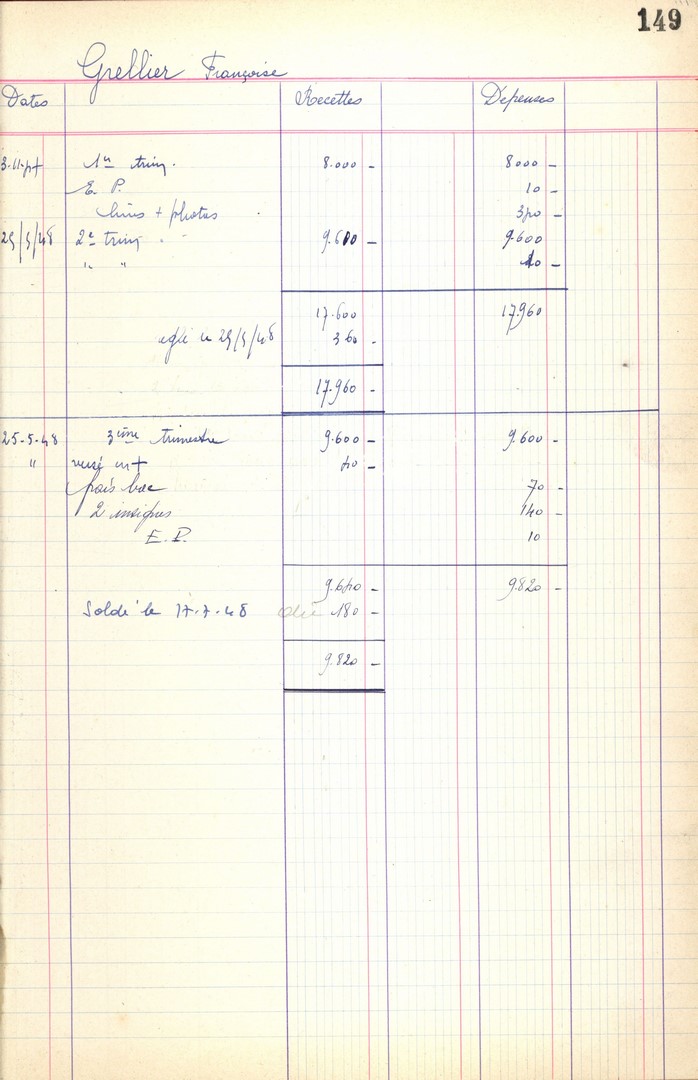 149
Grellier Françoise
Dates Recettes Depenses
3-11-47 1er trim. 8.000 - 8000 -
E. P. 10 -
livres + photos 340 -
2e trim. 9.600 - 9.600
" " 10 -
17.600 17.960
360 -
17.960 -
25-5-48 3ème trimestre 9.600 - 9.600 -
" versé en + 40 -
frais bac 70 -
2 insignes 140 -
E.P. 10
9.640 - 9.820 -
Soldé le 17-7-48 doit 180 -
9.820 -